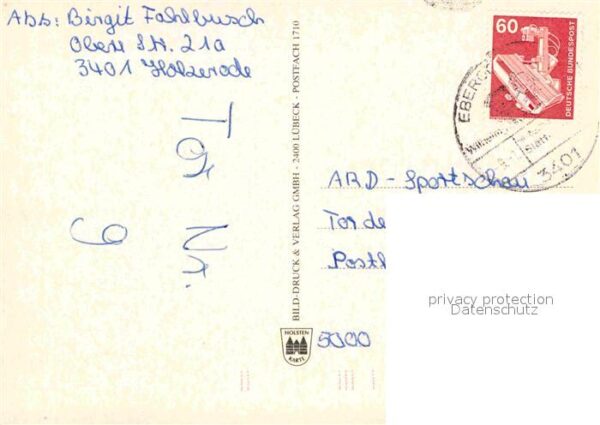 Abs: Birgit Fahlbusch
Obere Str. 21a
3401 Holzerode
Tor
Nr.
9
BILD-DRUCK & VERLAG GMBH - 2400 LÜBECK - POSTFACH 1710
HOLSTEN
KARTE
60
DEUTSCHE BUNDESPOST
3401
ARD - Sportschau
Tor de
Postf
5000
privacy protection
Datenschutz